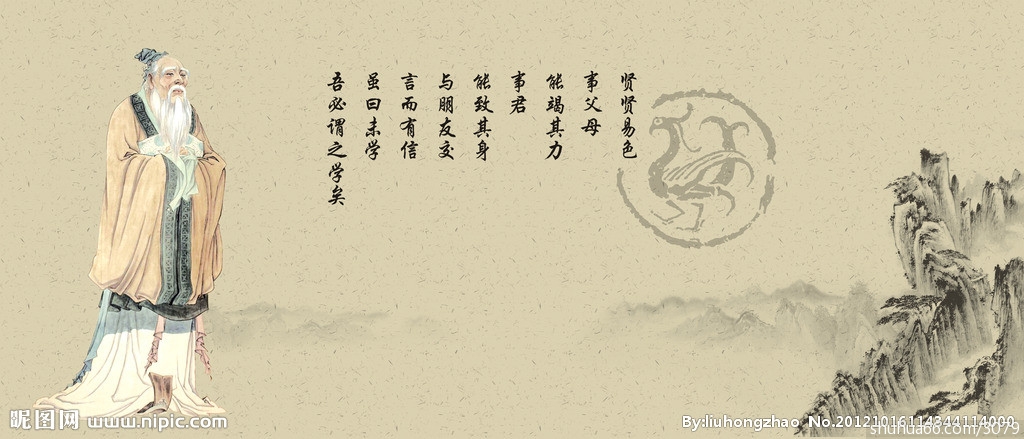 贤贤易色
事父母
能竭其力
事君
能致其身
与朋友交
言而有信
虽曰未学
吾必谓之学矣
昵图网 www.nipic.com
By:liuhongzhao No.20121016114344114000
shuhua66.com/3079